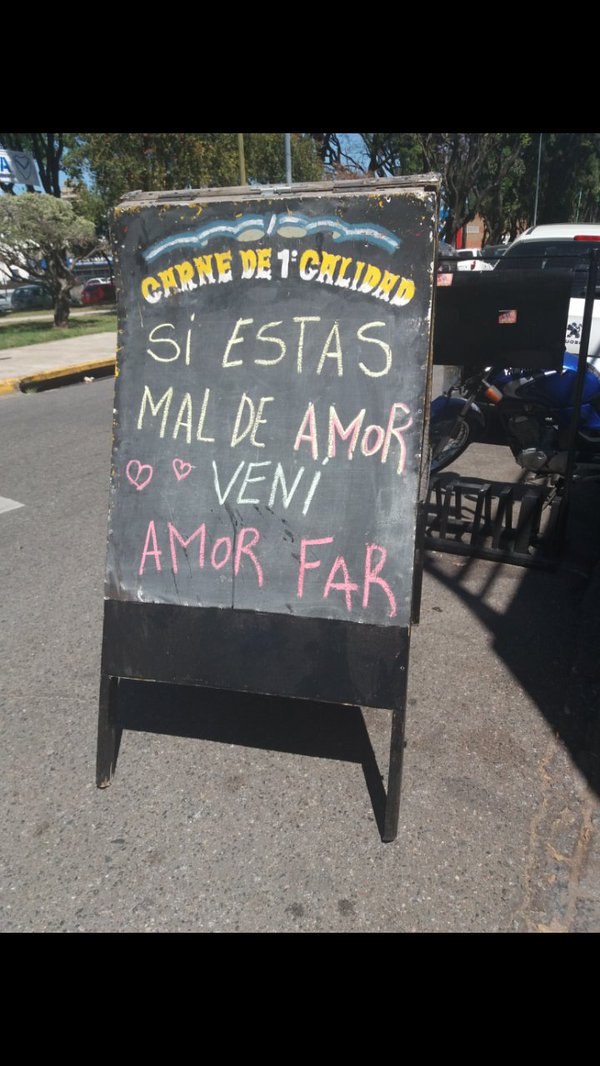 CARNE DE 1° CALIDAD
Si ESTAS
MAL DE AMOR
VENí
AMOR FAR